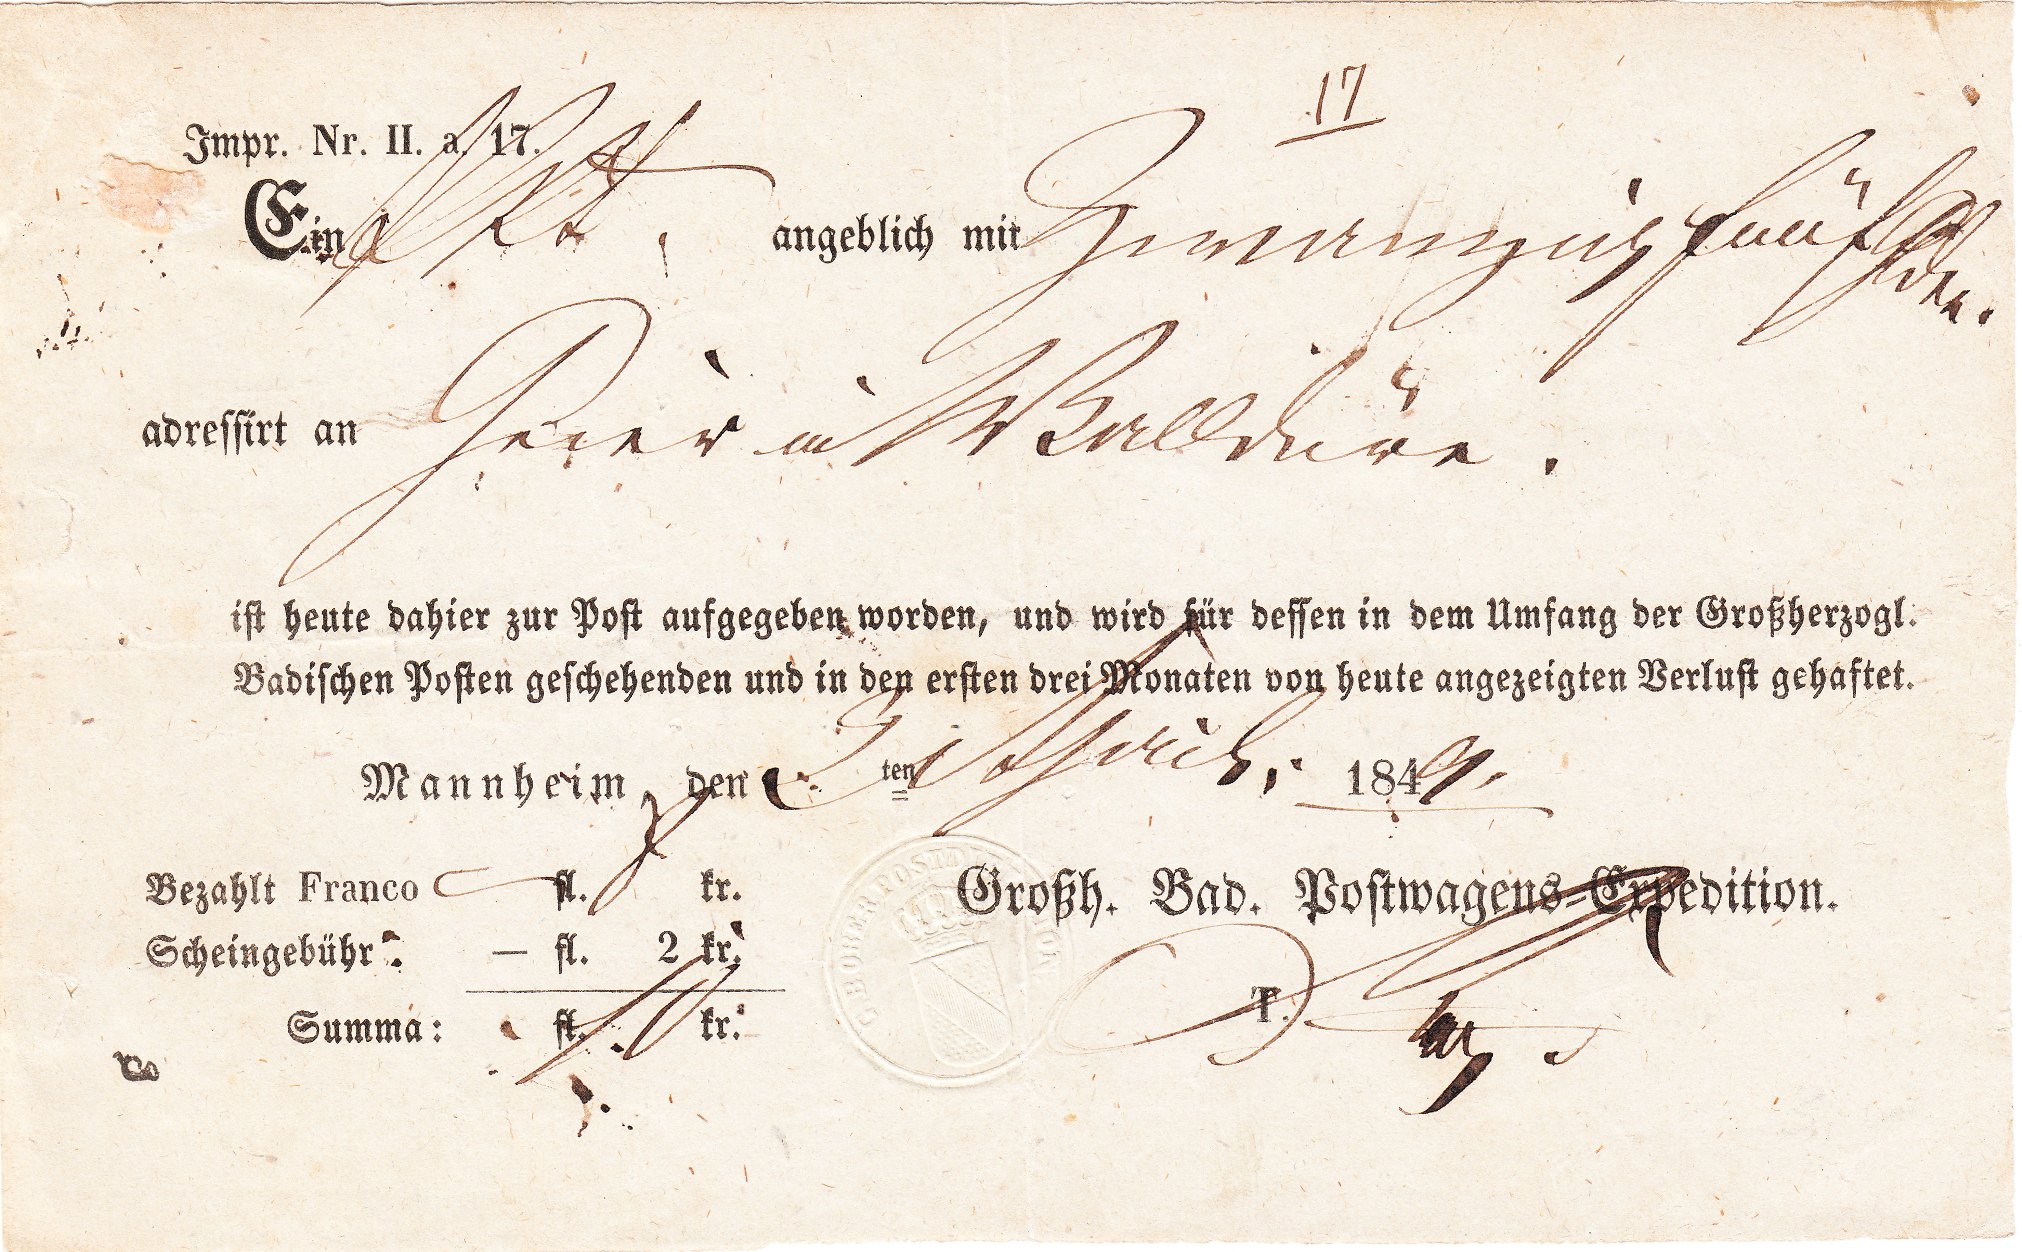 17
Impr. Nr. II. a. 17.
Ein Pkt. angeblich mit Zwanzig fünf Gulden.
adressirt an Geier in Walldürn.
ist heute dahier zur Post aufgegeben worden, und wird für dessen in dem Umfang der Großherzogl.
Badischen Posten geschehenden und in den ersten drei Monaten von heute angezeigten Verlust gehaftet.
Mannheim den ten 184
Bezahlt Franco fl. 8 kr.
Großh. Bad. Postwagens-Expedition.
Scheingebühr. — fl. 2 kr.
T.
Summa: fl. 10 kr.